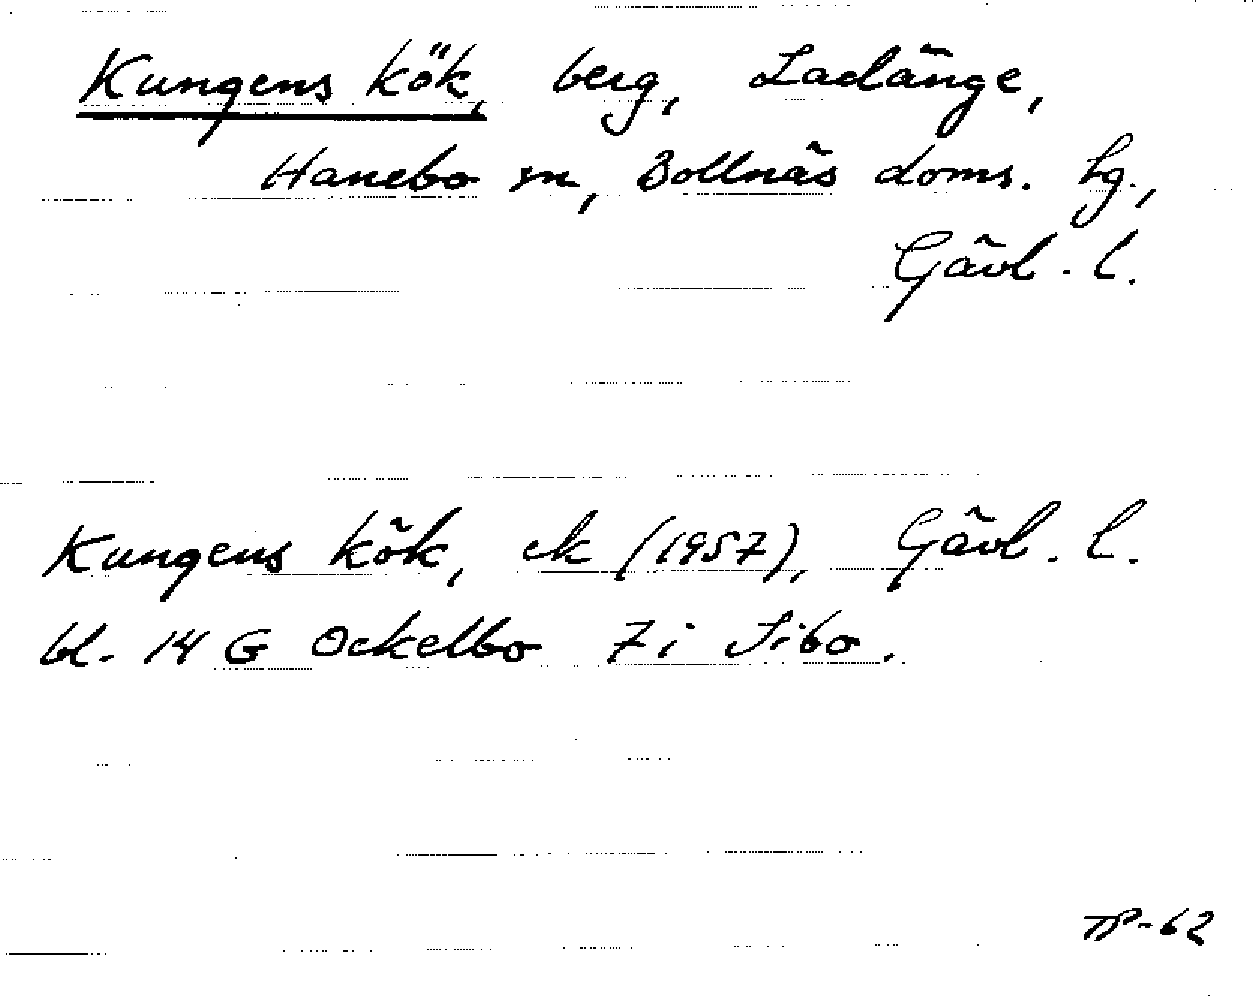 Kungens kök, berg, Ladänge,
Hanebo sn, Bollnäs doms. hg.,
Gävl. l.
Kungens kök, ek (1957), Gävl. l.
bl. 14 G Ockelbo 7 i Sibo.
TP-62